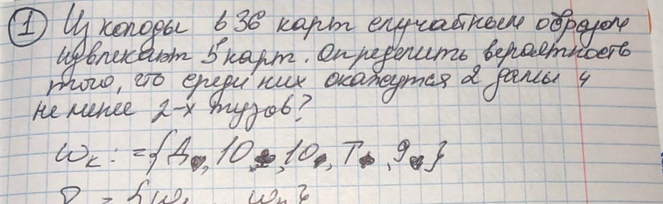 ① Из колоды в 36 карт случайным образом
извлекают 5 карт. Определить вероятность
того, что среди них окажутся 2 дамы и
не менее 2-х тузов?
ω_к: = {Д, 10, 10, Т, 9}